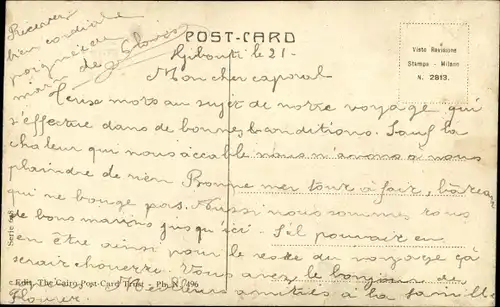 POST-CARD
Visto Revisione
Stampa - Milano
N. 2813.
Recevez
bien cordiale
poignée de
main de
Gibouti le 21-
Mon cher caporal
Deux mots au sujet de notre voyage qui
s'effectue dans de bonnes conditions. Sauf la
chaleur qui nous accable nous n'avons à nous
plaindre de rien Bonne mer tout à fait, bateau
qui ne bouge pas. Aussi nous sommes tous
de bons marins jusqu'ici. S'il pouvait en
en être ainsi pour le reste du voyage ça
serait chouette. Vous avez le bonjour de
amitiés à la famille
Serie
Edit. The Cairo Post-Card Trust - Ph. N. 496